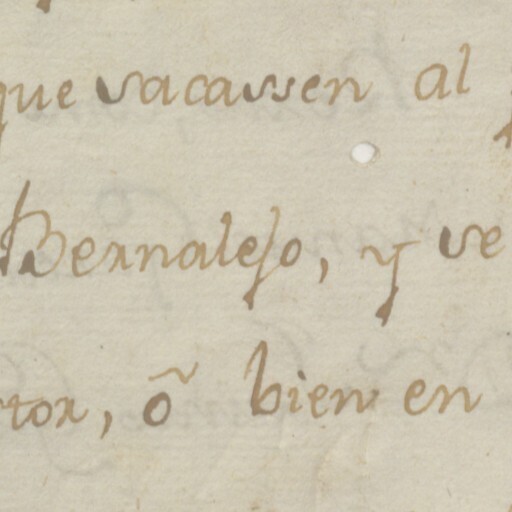 que vacassen al
Bernalejo, y ve
tor, õ bien en